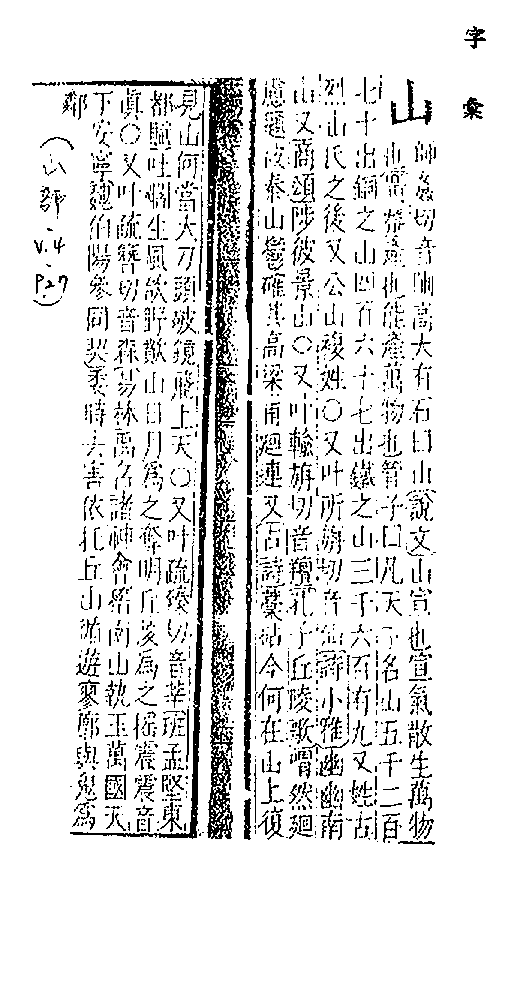 字彙
山
師姦切音刪高大有石曰山說文山宣也宣氣散生萬物
也 產也能產萬物也管子曰凡天下名山五千二百
七十出銅之山四百六十七出鐵之山三千六百有九又姓古
烈山氏之後又公山複姓○又叶所旃切音仙詩小雅幽幽南
山又商頌陟彼景山○又叶輸旃切音羶孔子丘陵歌喟然廻
慮題彼泰山鬱確其高梁甫廻連又古詩藁砧今何在山上復
見山何當大刀頭破鏡飛上天○又叶疏臻切音莘班孟堅東
都賦吐爓生風欱野歕山日月爲之奪明丘陵爲之搖震震音
眞○又叶疏簪切音森易林禹召諸神會稽南山執玉萬國天
下安寧魏伯陽參同契委時去害依托丘山循遊寥廓與鬼爲
鄰
(山部.
V.4
.
P.27)